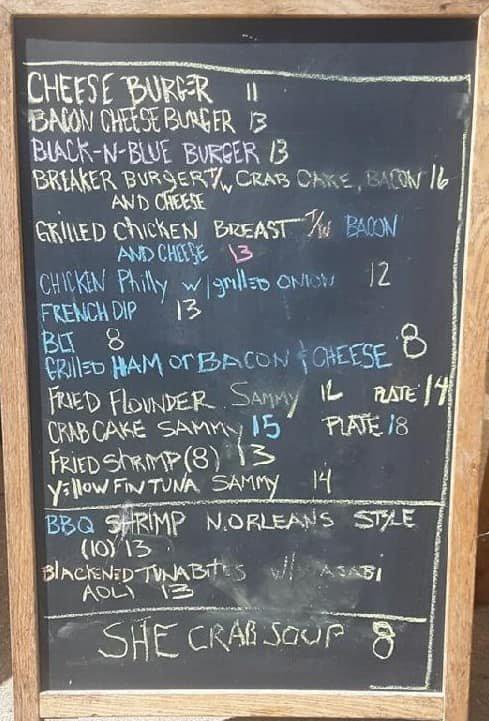 CHEESE BURGER 11
BACON CHEESE BURGER 13
BLACK-N-BLUE BURGER 13
BREAKER BURGER T/W CRAB CAKE, BACON 16
AND CHEESE
GRILLED CHICKEN BREAST T/W BACON
AND CHEESE 13
CHICKEN Philly w/grilled ONION 12
FRENCH DIP 13
BLT 8
GRILLED HAM or BACON & CHEESE 8
FRIED FLOUNDER SAMMY 12 PLATE 14
CRAB CAKE SAMMY 15 PLATE 18
FRIED SHRIMP (8) 13
Yellow FIN TUNA SAMMY 14
BBQ SHRIMP N.ORLEANS STYLE
(10) 13
BLACKENED TUNA BITES W/WASABI
AOLI 13
SHE CRAB SOUP 8